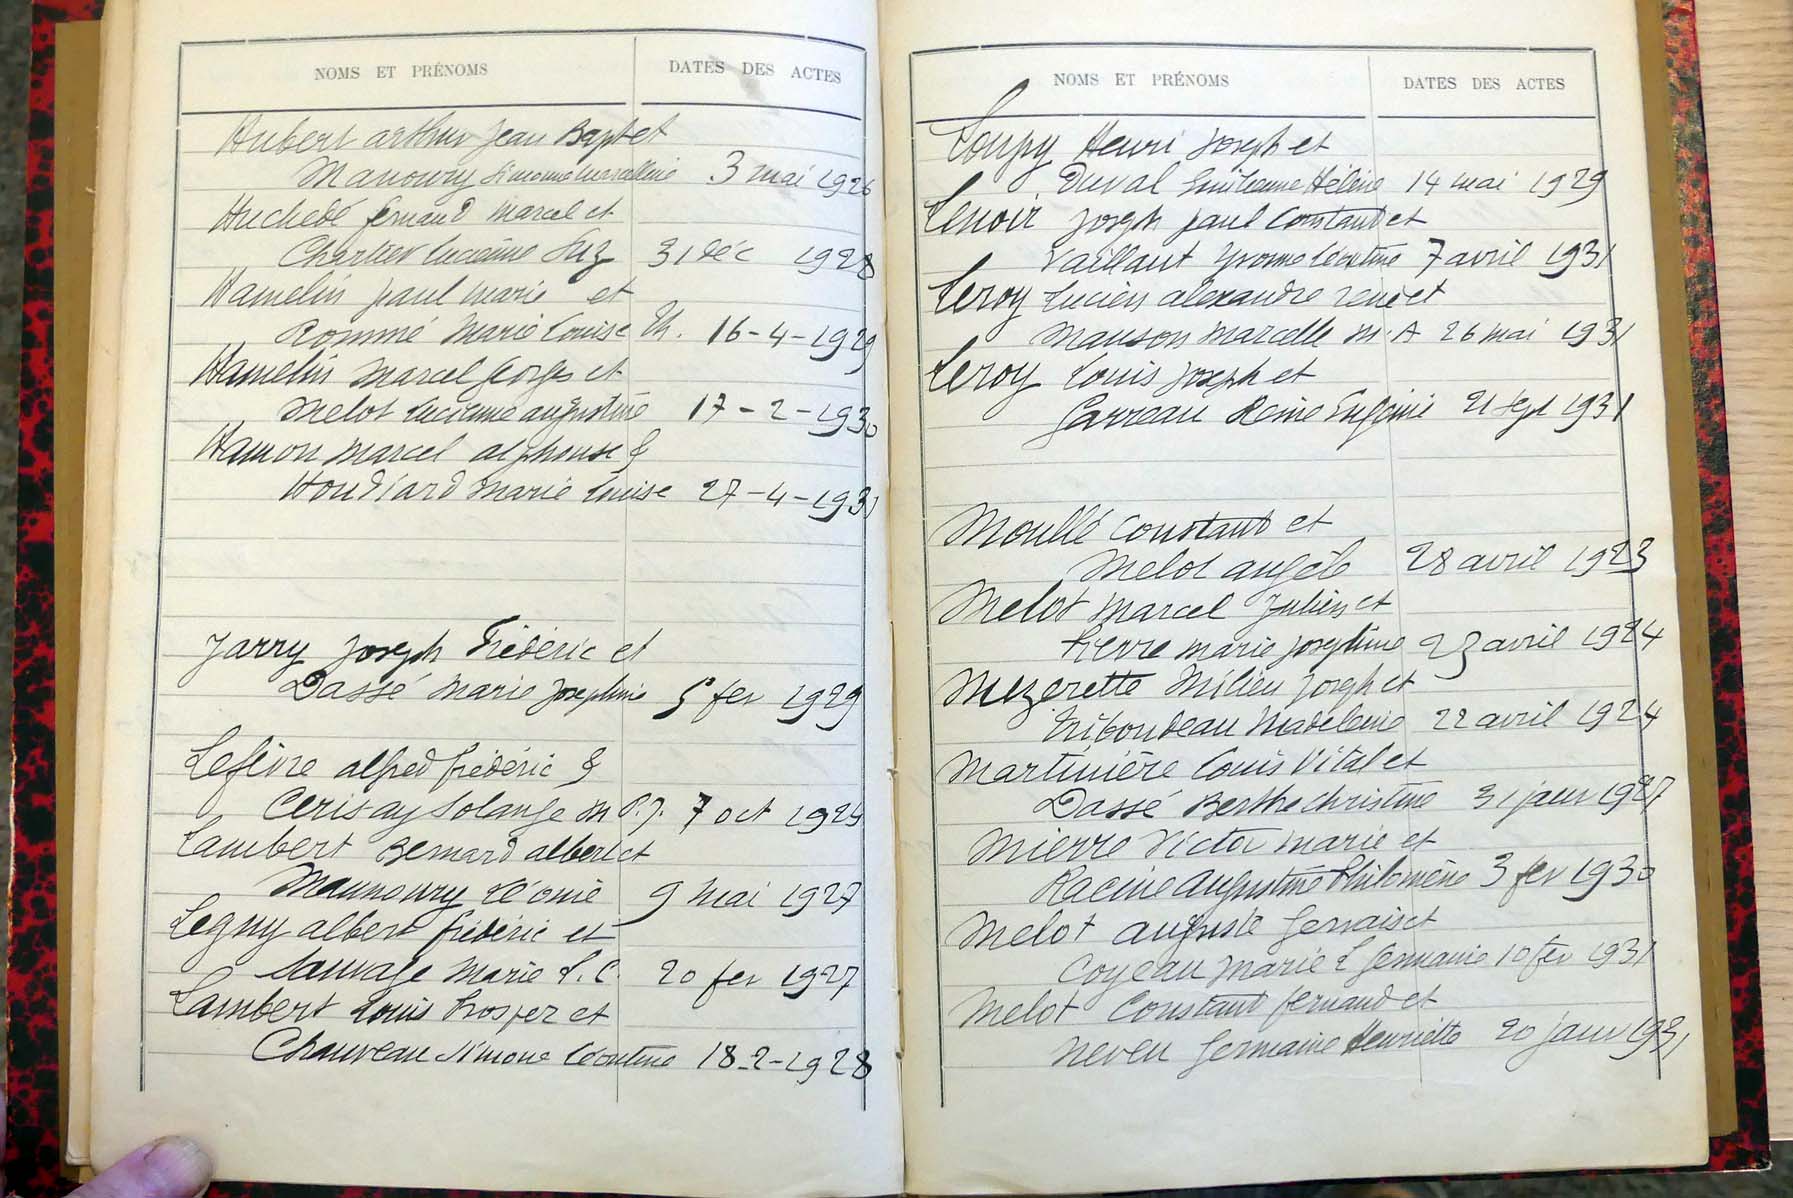 NOMS ET PRÉNOMS DATES DES ACTES
Hubert arthur Jean Bapt et
Manoury Simonne 3 mai 1926
Huchedé fernand Marcel et
Chartier lucienne Suz 31 Déc 1928
Hamelin paul marie et
Rommé Marie Louise Th. 16-4-1929
Hamelin Marcel Georges et
Melot Lucienne augustine 17-2-1930
Hamon Marcel alphonse &
Houdiard Marie Louise 27-4-1931
Jarry Joseph Frédéric et
Dassé Marie Josephine 5 fev 1929
Lefèvre alfred frédéric &
Cerisay Solange M P. J. 7 oct
Lambert Bernard albert et
Maunoury Léonie 9 mai 1927
Legny albert frédéric et
Sauvage Marie L. C. 20 fev 1927
Lambert Louis Prosper et
Chauveau Simone Léontine 18-2-1928
NOMS ET PRÉNOMS DATES DES ACTES
Loupy Henri Joseph et
Duval Hélène 14 mai 1929
Lenoir Joseph paul Constant et
Vaillant Yvonne Léontine 7 avril 1931
Leroy Lucien alexandre rené et
Manson Marcelle M. A 26 mai 1931
Leroy Louis Joseph et
Garreau Reine Eugénie 21 Sept 1931
Moullé Constant et
Melot angèle 28 avril 1923
Melot Marcel Julien et
Pierre Marie Joséphine 23 avril 1924
Mezerette Milien Joseph et
Triboudeau Madeleine 22 avril 1924
Martinière Louis Vital et
Dassé Berthe Christine 31 janv 1927
Mierre Victor Marie et
Racine Augustine Philomène 3 fev 1930
Melot auguste Gervais et
Coyeau Marie L Germaine 10 fev 1931
Melot Constant fernand et
Neveu Germaine Henriette 20 janv 1931